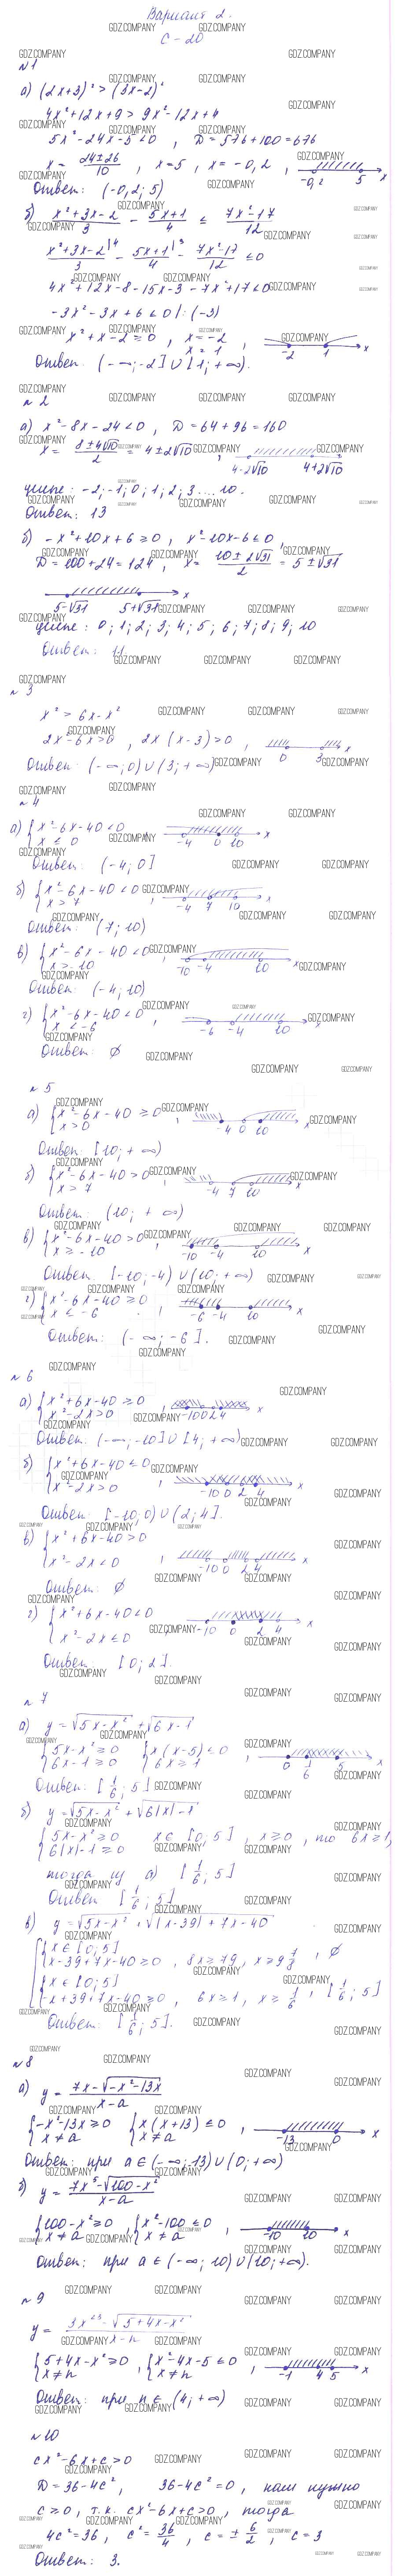 Вариант 2.
С - 20
№ 1
а) (2x+3)² > (3x-2)²
4x²+12x+9 > 9x²-12x+4
5x²-24x-5<0, D = 576+100=676
x = 24±26/10, x=5, x=-0,2, -0,2 5 x
Ответ: (-0,2; 5)
б) x²+3x-2/3 - 5x+1/4 ≤ 7x²-17/12
x²+3x-2|4/3 - 5x+1|3/4 - 7x²-17/12 ≤0
4x²+12x-8-15x-3-7x²+17≤0
-3x²-3x+6≤0 |:(-3)
x²+x-2≥0, x=-2
x=1, -2 1 x
Ответ: (-∞;-2]∪[1;+∞).
№ 2
а) x²-8x-24<0, D=64+96=160
x = 8±4√10/2 = 4±2√10, 4-2√10 4+2√10
целые: -2;-1;0;1;2;3...10.
Ответ: 13
б) -x²+10x+6≥0, x²-10x-6≤0,
D=100+24=124, x= 10±2√31/2 = 5±√31
5-√31 5+√31 x
целые: 0;1;2;3;4;5;6;7;8;9;10
Ответ: 11.
№ 3
x² > 6x-x²
2x²-6x>0, 2x(x-3)>0, 0 3 x
Ответ: (-∞;0)∪(3;+∞)
№ 4
а) {x²-6x-40<0 -4 0 10 x
x≤0
Ответ: (-4;0]
б) {x²-6x-40<0, -4 7 10 x
x>7
Ответ: (7;10)
в) {x²-6x-40<0, -10 -4 10 x
x>-10
Ответ: (-4;10)
г) {x²-6x-40<0, -6 -4 10 x
x<-6
Ответ: ∅
№ 5
а) {x²-6x-40≥0, -4 0 10 x
x>0
Ответ: [10;+∞)
б) {x²-6x-40>0, -4 7 10 x
x>7
Ответ: (10;+∞)
в) {x²-6x-40>0, -10 -4 10 x
x≥-10
Ответ: [-10;-4)∪(10;+∞)
г) {x²-6x-40≥0, -6 -4 10 x
x<-6
Ответ: (-∞;-6].
№ 6
а) {x²+6x-40≥0, -10 0 2 4 x
x²-2x>0
Ответ: (-∞;-10]∪[4;+∞)
б) {x²+6x-40≤0, -10 0 2 4 x
x²-2x>0
Ответ: [-10;0)∪(2;4].
в) {x²+6x-40>0, -10 0 2 4 x
x²-2x<0
Ответ: ∅
г) {x²+6x-40<0, -10 0 2 4 x
x²-2x≤0
Ответ: [0;2].
№ 7
а) y=√5x-x² + √6x-1
{5x-x²≥0 {x(x-5)≤0, 0 1/6 5 x
6x-1≥0 6x≥1
Ответ: [1/6;5]
б) y=√5x-x² + √6|x|-1
{5x-x²≥0 x∈[0;5], x≥0, то 6x≥1,
6|x|-1≥0
тогда из а) [1/6;5]
Ответ [1/6;5]
в) y=√5x-x² + √|x-39|+7x-40
{x∈[0;5]
x-39+7x-40≥0, 8x≥79, x≥9 7/8, ∅
{x∈[0;5]
-x+39+7x-40≥0, 6x≥1, x≥1/6, [1/6;5]
Ответ: [1/6;5].
№ 8
а) y= 7x-√-x²-13x/x-a
{-x²-13x≥0 {x(x+13)≤0, -13 0 x
x≠a x≠a
Ответ: при a∈(-∞;13)∪(0;+∞)
б) y= 7x⁵-√100-x²/x-a
{100-x²≥0 {x²-100≤0, -10 10 x
x≠a, x≠a
Ответ: при a∈(-∞;10)∪(10;+∞).
№ 9
y= 3x²³-√5+4x-x²/x-n
{5+4x-x²≥0, {x²-4x-5≤0, -1 4 5 x
x≠n x≠n
Ответ: при n∈(4;+∞)
№ 10
cx²-6x+c>0
D=36-4c², 36-4c²=0, нам нужно
c≥0, т.к. cx²-6x+c>0, тогда
4c²=36, c²=36/4, c=±6/2, c=3
Ответ: 3.
GDZ.COMPANY